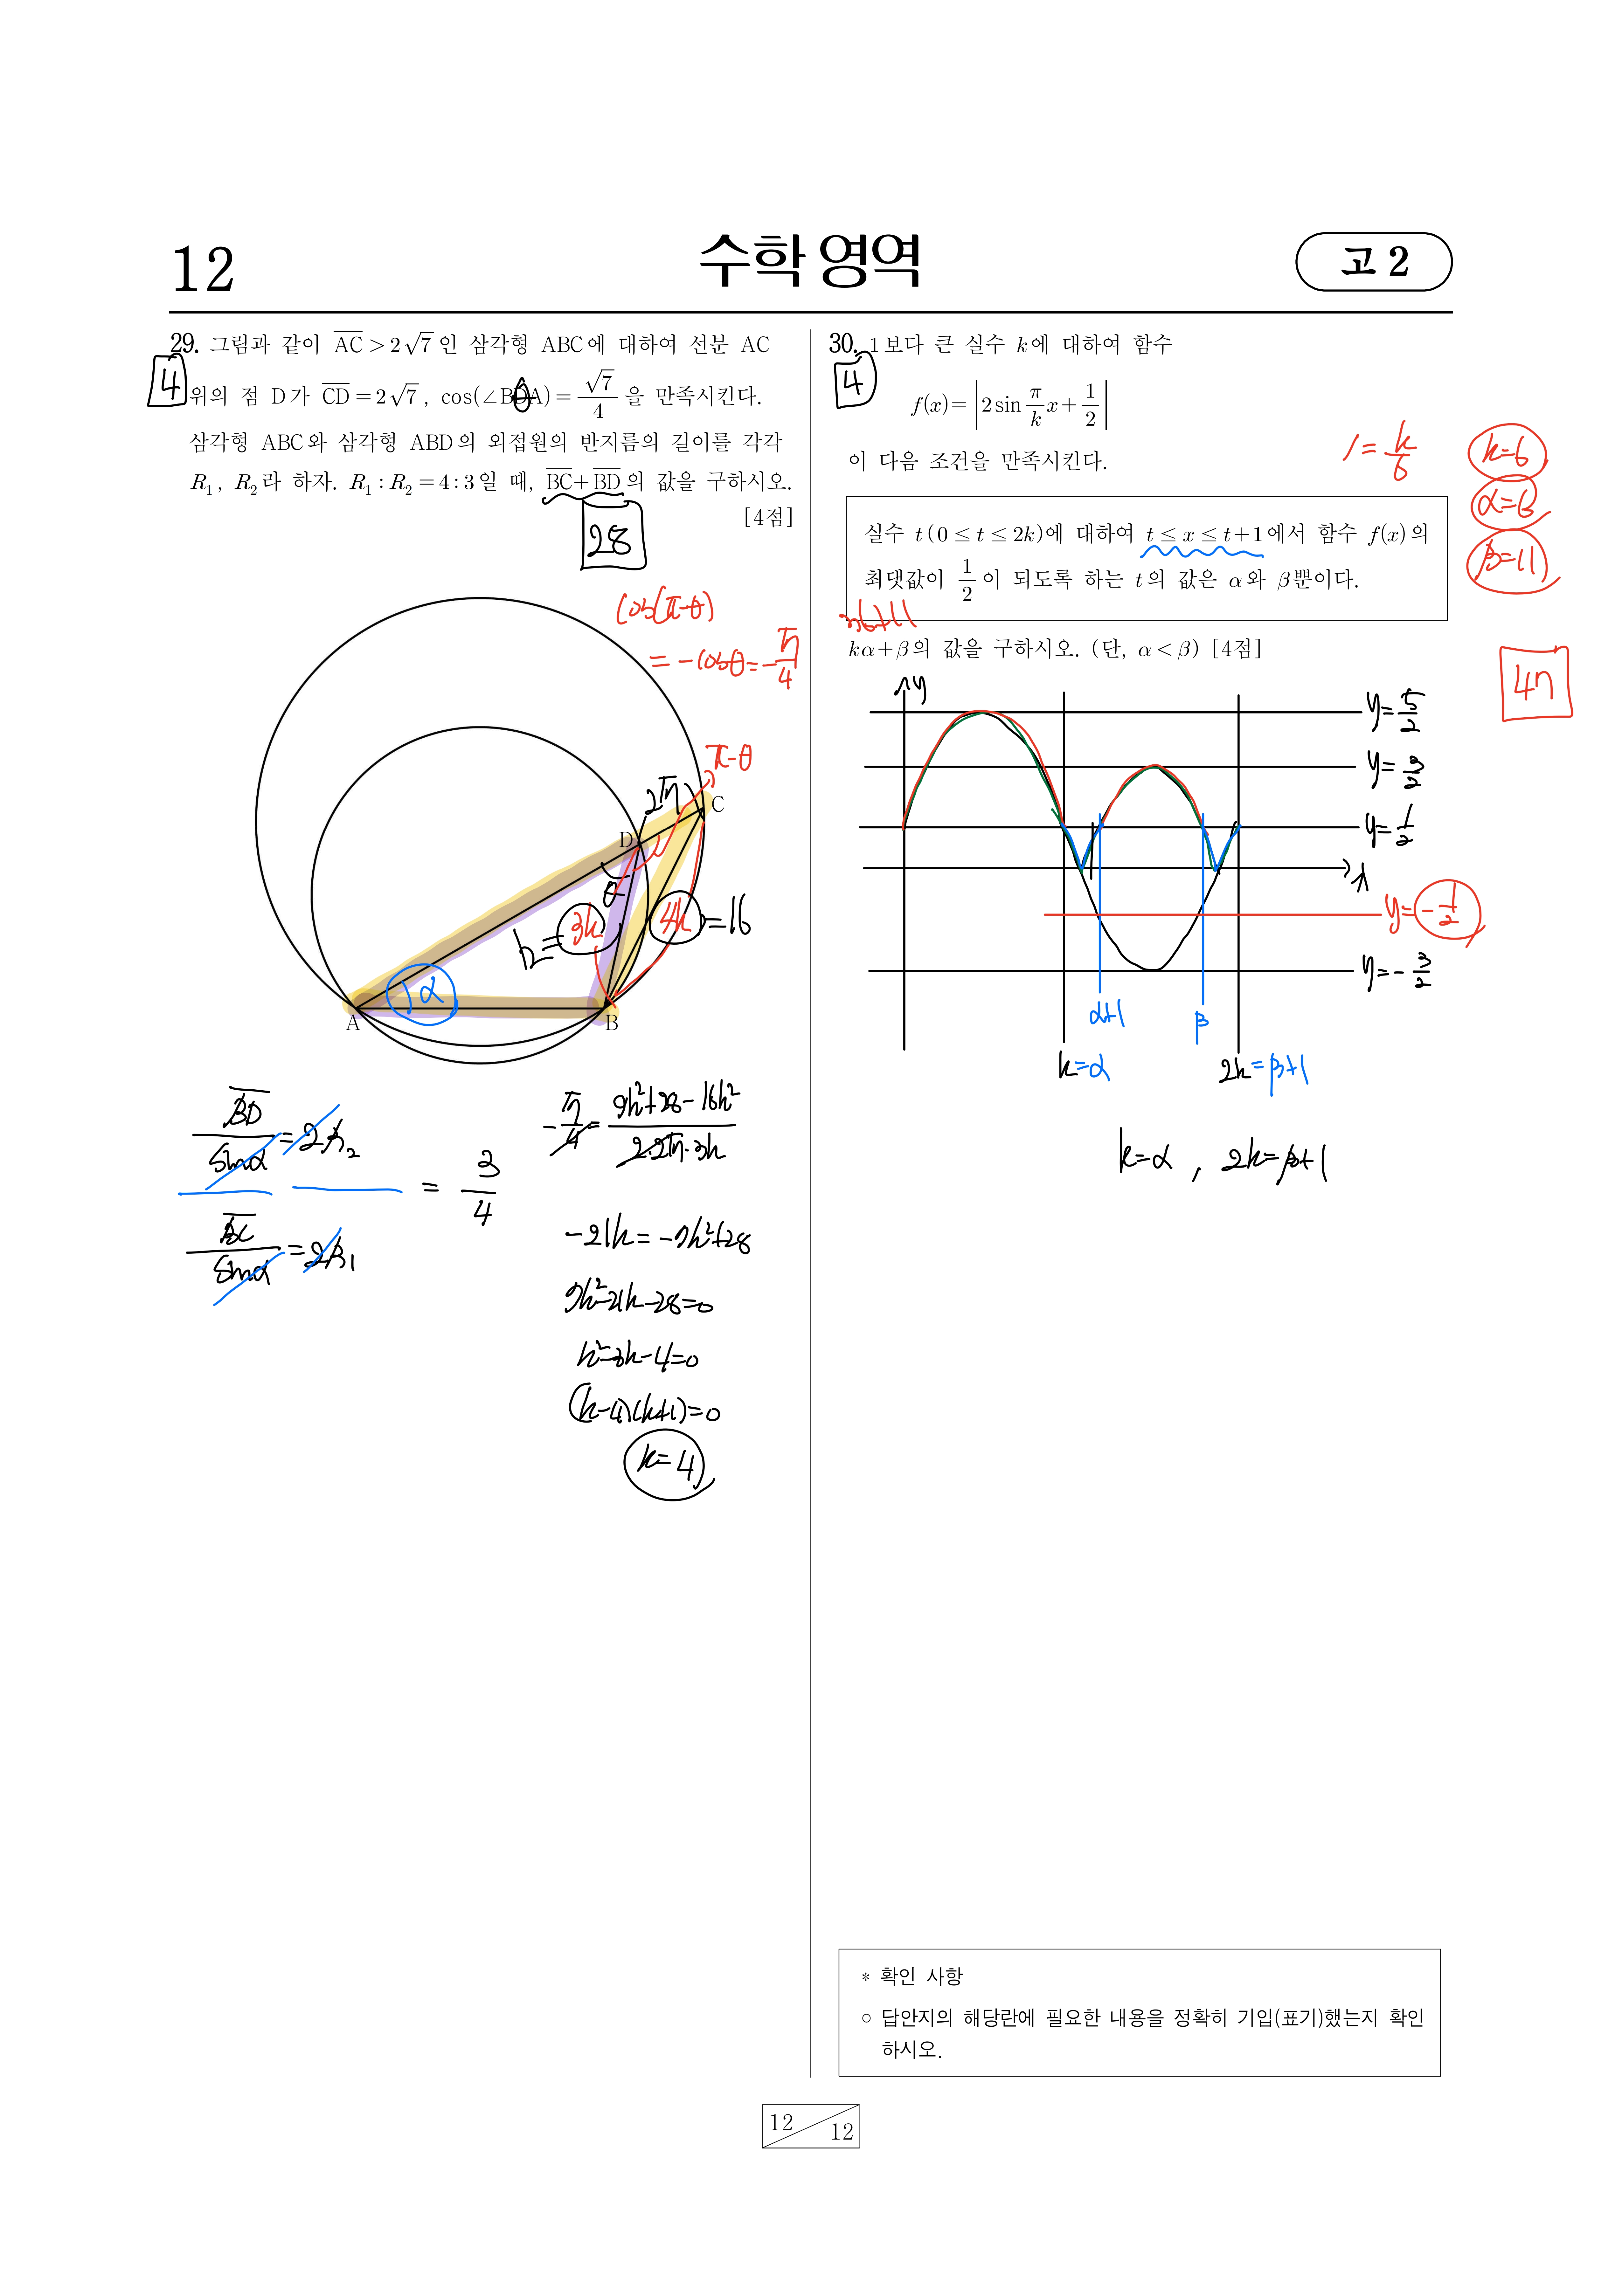 12
수학 영역
고 2
29. 그림과 같이 AC > 2√7 인 삼각형 ABC에 대하여 선분 AC
위의 점 D가 CD = 2√7 , cos(∠BDA) = √7/4 을 만족시킨다.
삼각형 ABC와 삼각형 ABD의 외접원의 반지름의 길이를 각각
R₁, R₂라 하자. R₁ : R₂ = 4 : 3일 때, BC + BD의 값을 구하시오.
[4점]
4
θ
28
cos(π-θ)
= -cosθ = -√7/4
π-θ
2√7
C
D
θ
12=3k
4k=16
α
A
B
BD/sinα = 2R₂
BC/sinα = 2R₁
= 3/4
-√7/4 = 9k²+28-16k²/2·2√7·3k
-21k = -7k²+28
7k²-21k-28=0
k²-3k-4=0
(k-4)(k+1)=0
k=4
30. 1보다 큰 실수 k에 대하여 함수
4
f(x) = |2 sin π/k x + 1/2|
이 다음 조건을 만족시킨다.
1 = k/6
k=6
α=6
β=11
실수 t (0 ≤ t ≤ 2k)에 대하여 t ≤ x ≤ t+1에서 함수 f(x)의
최댓값이 1/2이 되도록 하는 t의 값은 α와 β뿐이다.
kα+β의 값을 구하시오. (단, α < β) [4점]
47
y
y=5/2
y=3/2
y=1/2
x
y=-1/2
y=-3/2
α+1
β
k=α
2k=β+1
k=α , 2k=β+1
* 확인 사항
○ 답안지의 해당란에 필요한 내용을 정확히 기입(표기)했는지 확인
하시오.
12
12